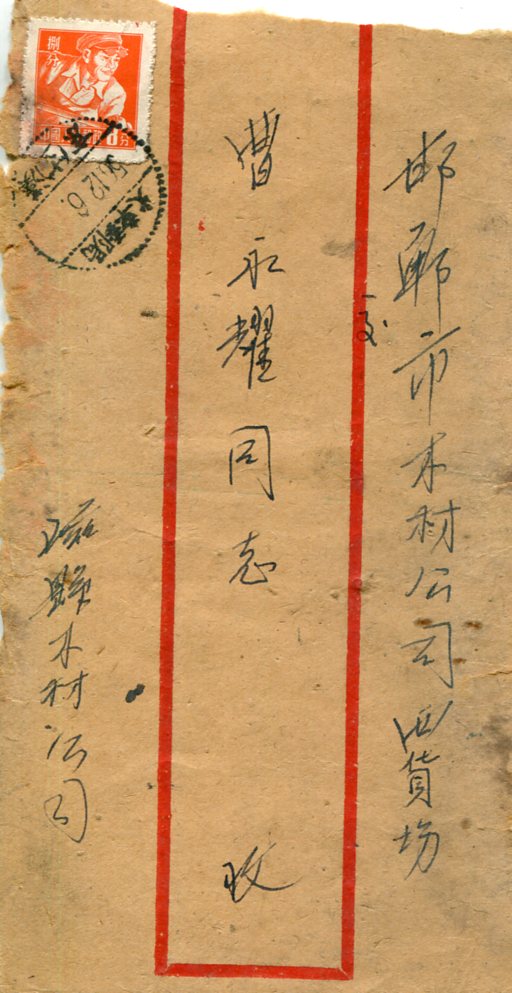 邯鄲市木材公司西貨場
交
曹永耀同志 收
磁縣木材公司
捌分
56.12.6